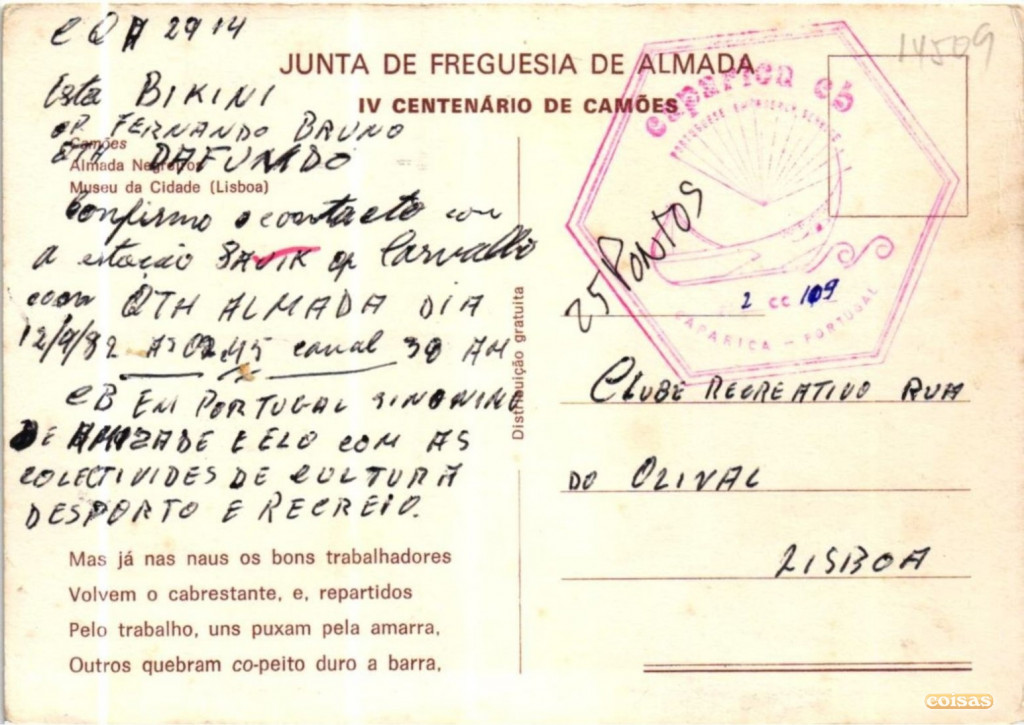 14509
CQA 2914
JUNTA DE FREGUESIA DE ALMADA
IV CENTENÁRIO DE CAMÕES
Esta BIKINI
OP. FERNANDO BRUNO
QTH DAFUNDO
Camões
Almada Negreiros
Museu da Cidade (Lisboa)
Confirmo o contacto com
a estação OP Carvalho
com QTH ALMADA DIA
12/9/82 AS 02.45 canal 30 AM
CB EM PORTUGAL SINONIMO
DE AMIZADE E ELO COM AS
COLECTIVIDES DE CULTURA
DESPORTO E RECREIO.
Mas já nas naus os bons trabalhadores
Volvem o cabrestante, e, repartidos
Pelo trabalho, uns puxam pela amarra,
Outros quebram co-peito duro a barra,
Distribuição gratuita
caparica cb
2 CC 109
CAPARICA - PORTUGAL
25 PONTOS
CLUBE RECREATIVO RUA
DO OLIVAL
LISBOA
coisas